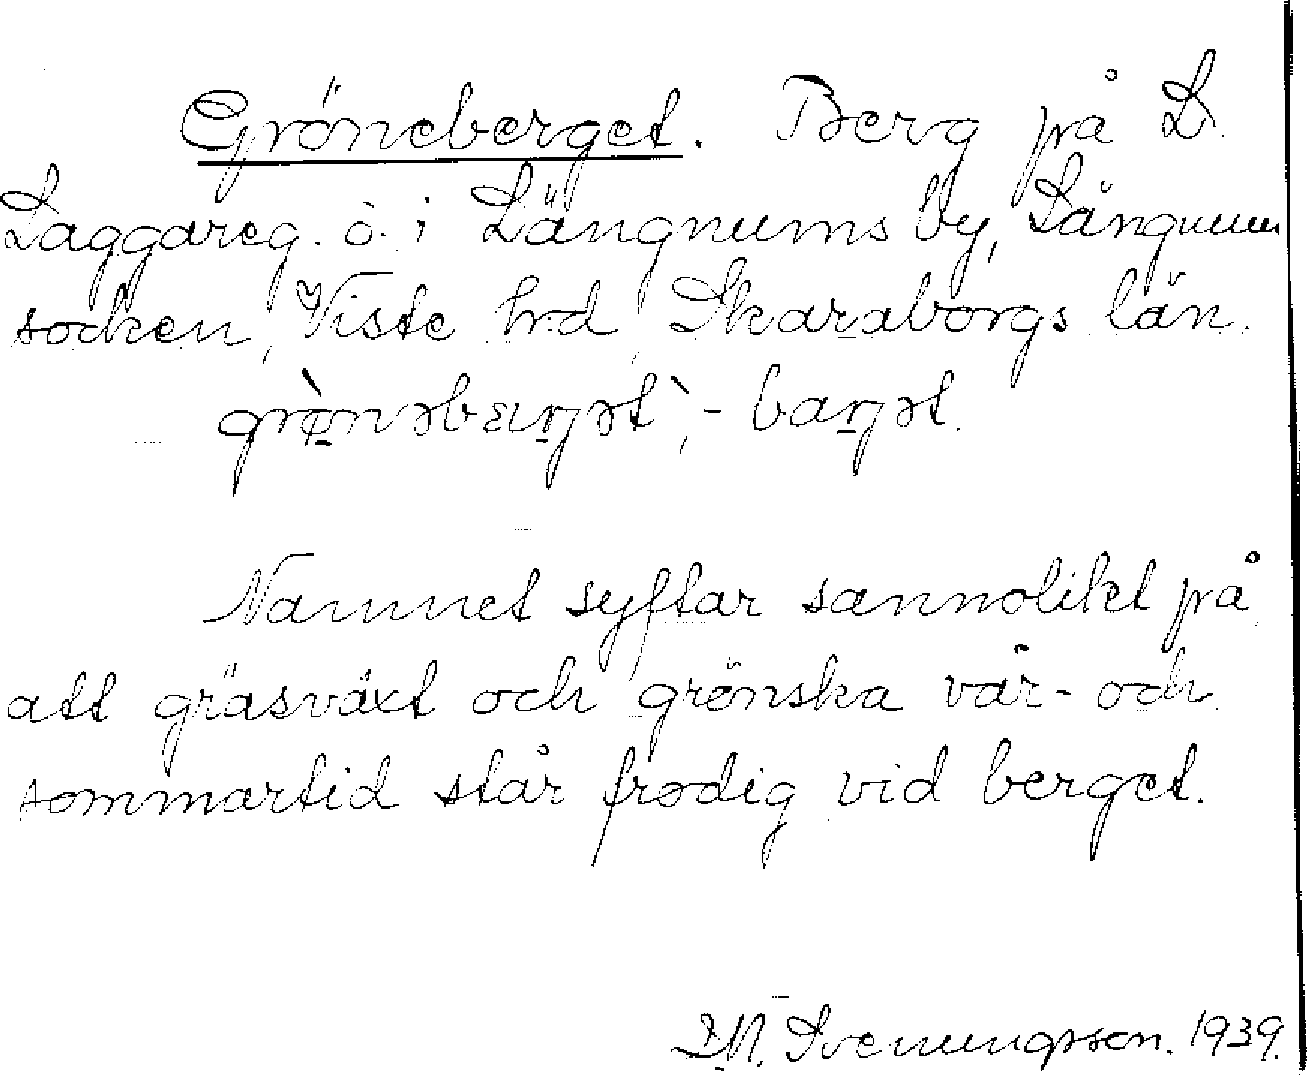 Gröneberget. Berg på L.
Laggareg. ä. i Längnums by, Längnum
socken, Viste hrd, Skaraborgs län.
grö̀nəbærjət, -barjət.
Namnet syftar sannolikt på
att gräsväxt och grönska vår- och
sommartid står frodig vid berget.
Svenungsson. 1939.